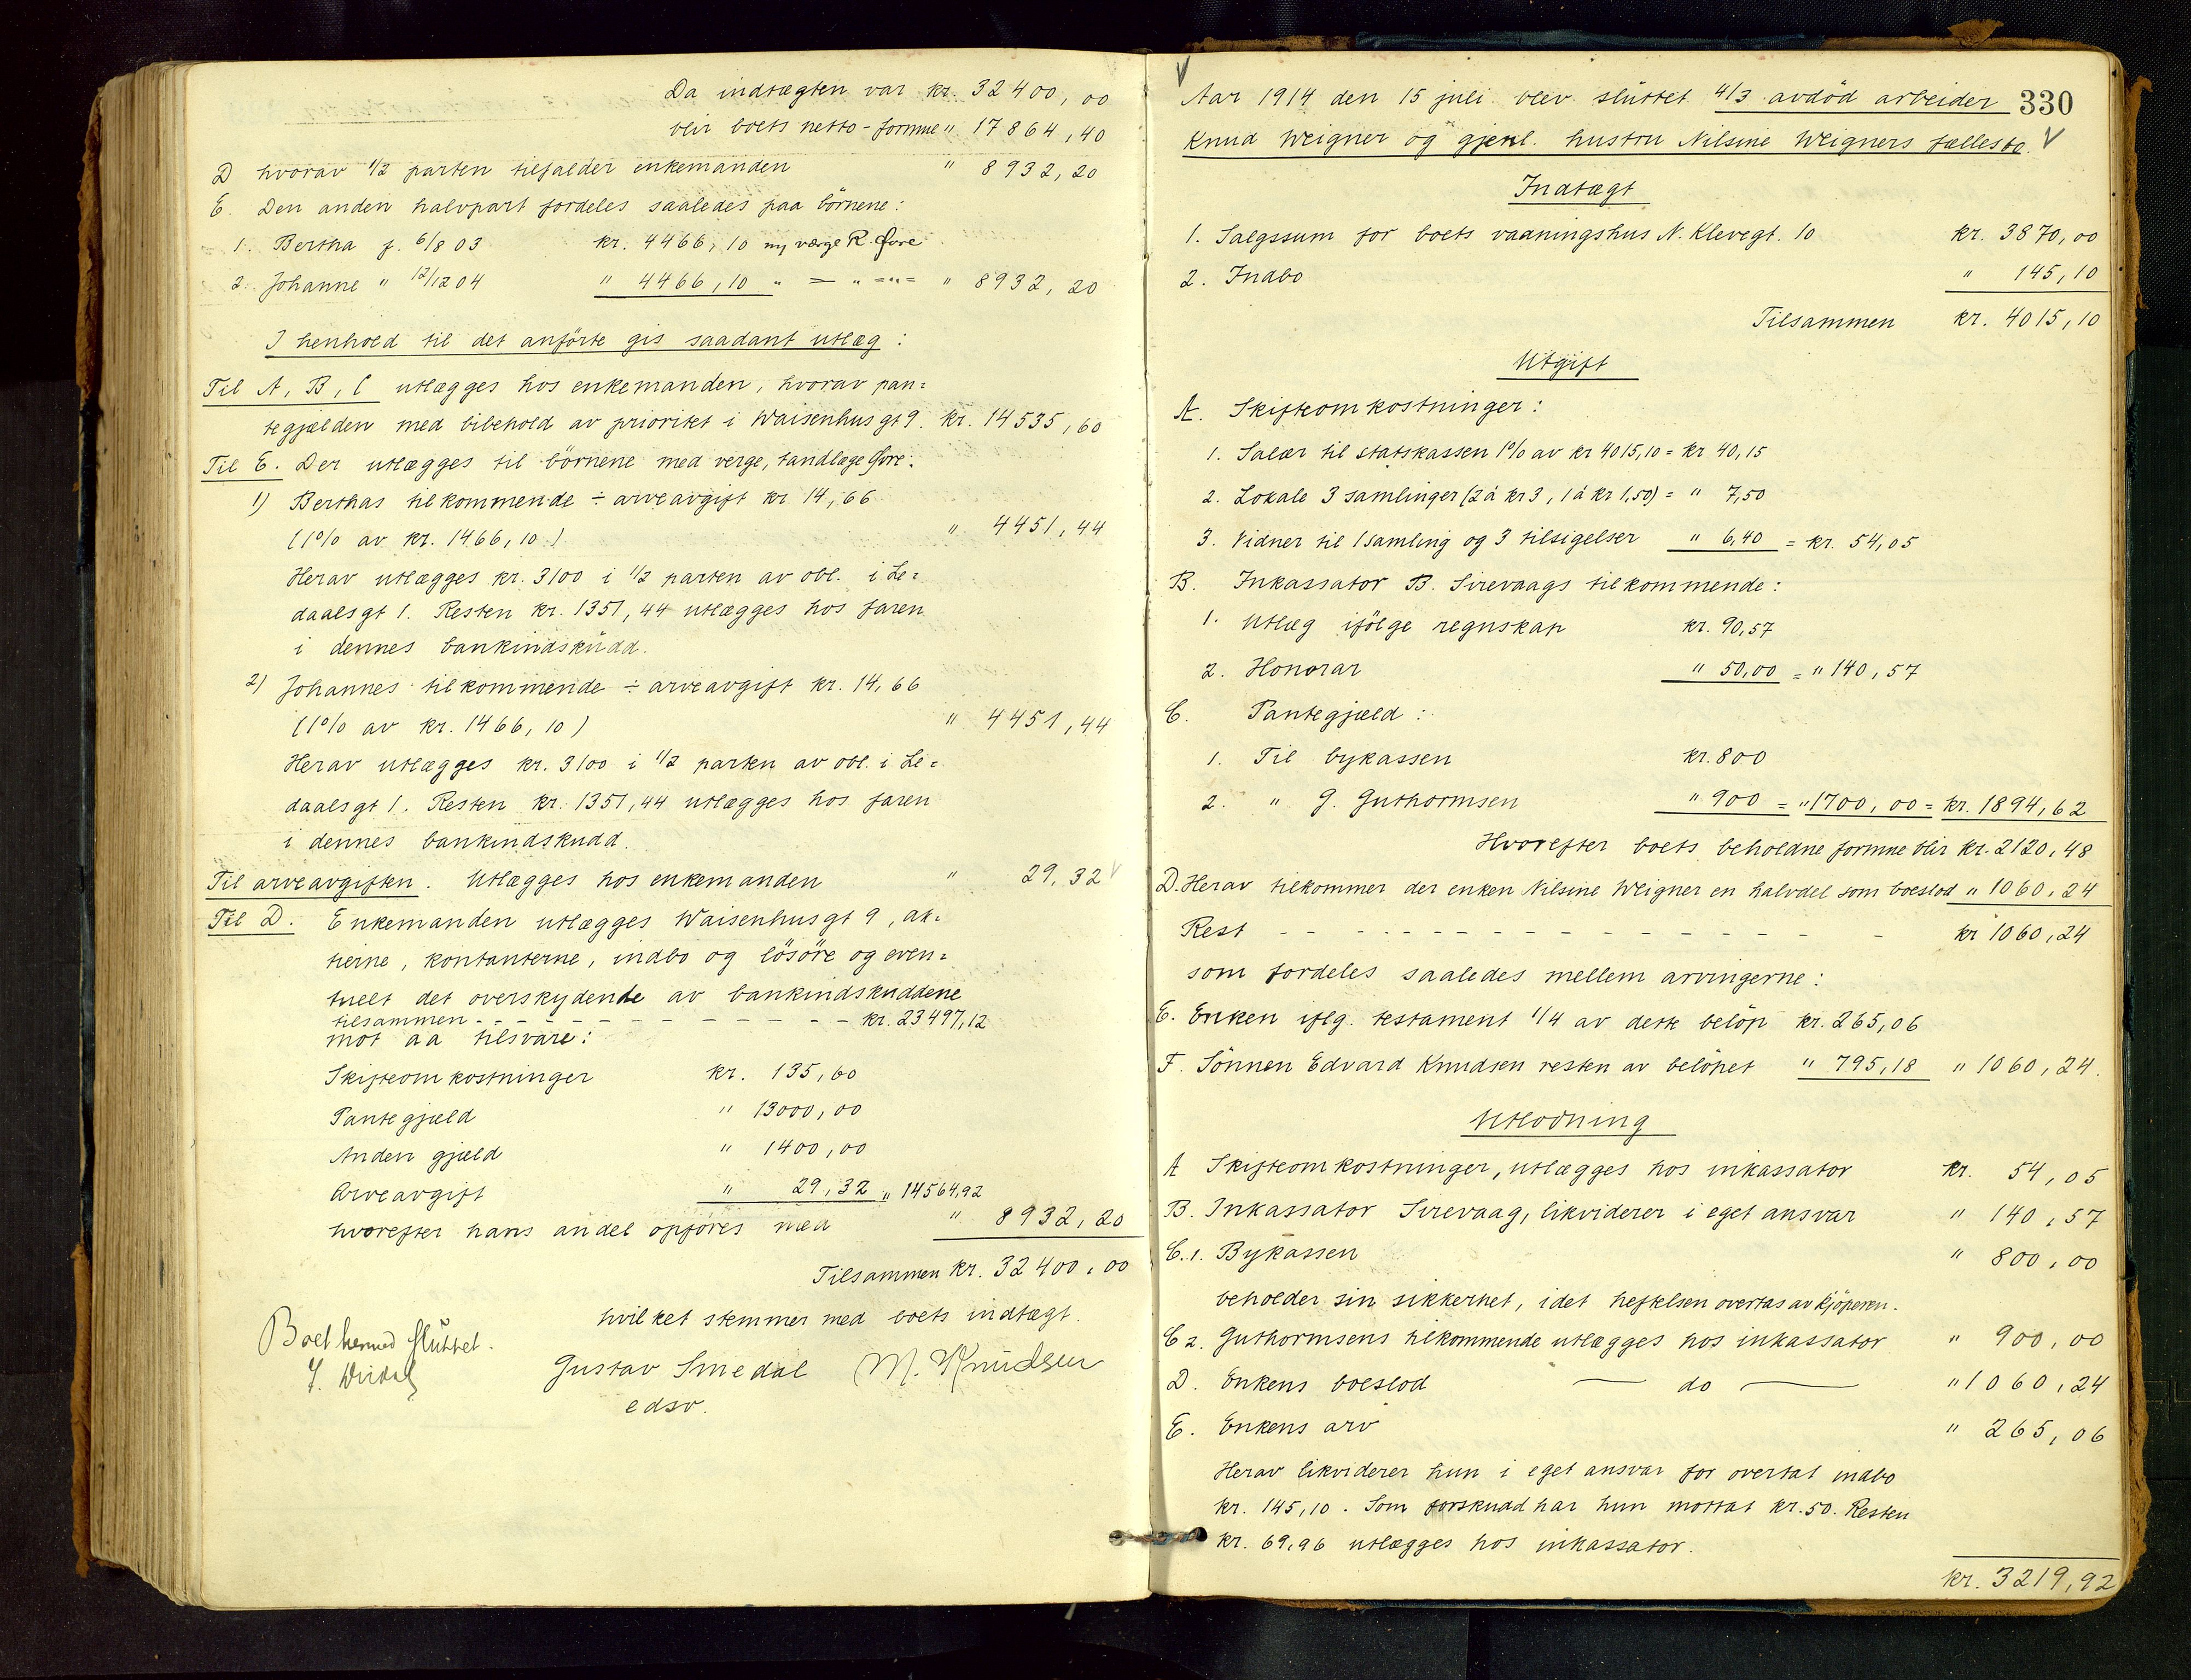 Da indtægten var kr. 32400,00
blir boets netto-formue " 17864,40
D hvorav 1/2 parten tilfalder enkemanden " 8932,20
E. Den anden halvpart fordeles saaledes paa börnene:
1. Bertha f. 6/8 03 kr. 4466,10 ny værge R. Øvre
2. Johanne " 12/12 04 " 4466,10 " = " ="= " 8932,20
I henhold til det anförte gis saadant utlæg:
Til A, B, C utlægges hos enkemanden, hvorav pan=
tegjælden med bibehold av prioritet i Waisenhusgt 9. kr. 14535,60
Til E. Der utlægges til börnene med verge, tandlæge Øvre:
1) Berthas tilkommende ÷ arveavgift kr 14,66
(1% av kr. 1466,10) " 4451,44
Herav utlægges kr. 3100 i 1/2 parten av obl. i Le=
daalsgt 1. Resten kr. 1351,44 utlægges hos faren
i dennes bankindskudd.
2) Johannes tilkommende ÷ arveavgift kr. 14,66
(1% av kr. 1466,10) " 4451,44
Herav utlægges kr. 3100 i 1/2 parten av obl. i Le=
daalsgt 1. Resten kr. 1351,44 utlægges hos faren
i dennes bankindskudd.
Til arveavgiften. Utlægges hos enkemanden " 29,32
Til D. Enkemanden utlægges Waisenhusgt 9, ak=
tierne, kontanterne, indbo og lösöre og even=
tuelt det overskydende av bankindskuddene
tilsammen - - - - - - - - - - - kr. 23497,12
mot aa tilsvare:
Skifteomkostninger kr. 135,60
Pantegjæld " 13000,00
Anden gjæld " 1400,00
Arveavgift " 29,32 " 14564,92
hvorefter hans andel opföres med " 8932,20
Tilsammen kr. 32400,00
hvilket stemmer med boets indtægt.
Boet hermed sluttet.
Gustav Smedal M. Knudsen
edsv.
330
Aar 1914 den 15 juli blev sluttet 4/3 avdöd arbeider
Knud Weigner og gjenl. hustru Nilsine Weigners fællesbo.
Indtægt
1. Salgssum for boets vaaningshus N. Klevegt. 10 kr. 3870,00
2. Indbo " 145,10
Tilsammen kr. 4015,10
Utgift
A. Skifteomkostninger:
1. Salær til statskassen 1% av kr 4015,10 = kr 40,15
2. Lokale 3 samlinger (2 à kr 3, 1 à kr 1,50) = " 7,50
3. Vidner til 1 samling og 3 tilsigelser " 6,40 = kr. 54,05
B. Inkassator B. Sirevaags tilkommende:
1. Utlæg ifölge regnskap kr. 90,57
2. Honorar " 50,00 = " 140,57
C. Pantegjæld:
1. Til bykassen kr. 800
2. " G. Guthormsen " 900 = " 1700,00 = kr. 1894,62
Hvorefter boets beholdne formue blir kr. 2120,48
D. Herav tilkommer der enken Nilsine Weigner en halvdel som boeslod " 1060,24
Rest - - - - - - - - - - - - - - - - kr 1060,24
som fordeles saaledes mellem arvingerne:
E. Enken iflg. testament 1/4 av dette belöp kr. 265,06
F. Sönnen Edvard Knudsen resten av belöpet " 795,18 " 1060,24.
Utlodning
A Skifteomkostninger, utlægges hos inkassator kr. 54,05
B. Inkassator Sirevaag, likviderer i eget ansvar " 140,57
C. 1. Bykassen " 800,00
beholder sin sikkerhet, idet heftelsen overtas av kjöperen.
C 2. Guthormsens tilkommende utlægges hos inkassator " 900,00
D. Enkens boeslod — do — " 1060,24
E. Enkens arv " 265,06
Herav likviderer hun i eget ansvar for overtat indbo
kr. 145,10. Som forskudd har hun mottat kr. 50. Resten
kr. 69,96 utlægges hos inkassator.
kr. 3219,92